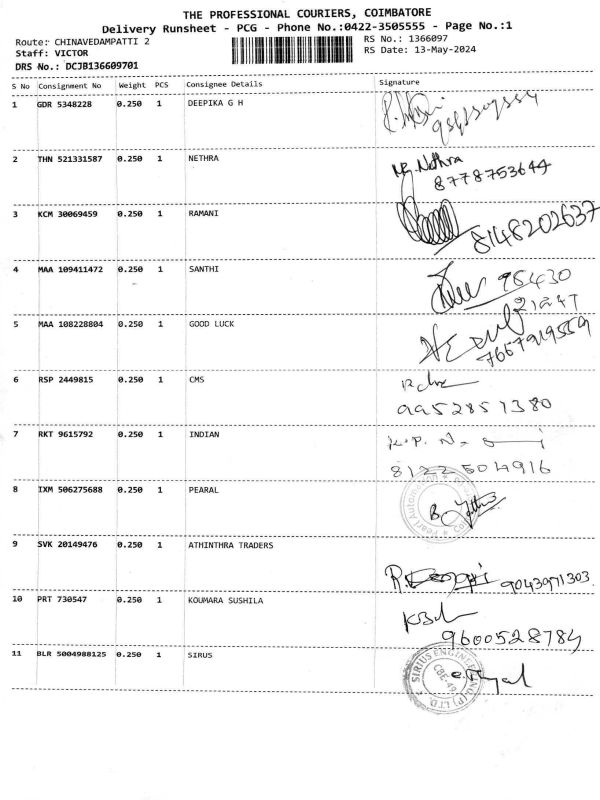 THE PROFESSIONAL COURIERS, COIMBATORE
Delivery Runsheet - PCG - Phone No.:0422-3505555 - Page No.:1
Route: CHINAVEDAMPATTI 2 RS No.: 1366097
Staff: VICTOR RS Date: 13-May-2024
DRS No.: DCJB136609701
S No Consignment No Weight PCS Consignee Details Signature
1 GDR 5348228 0.250 1 DEEPIKA G H
2 THN 521331587 0.250 1 NETHRA Nethra
8778753644
3 KCM 30069459 0.250 1 RAMANI
8148202637
4 MAA 109411472 0.250 1 SANTHI 98430
21247
5 MAA 108228804 0.250 1 GOOD LUCK
7667919559
6 RSP 2449815 0.250 1 CMS
9952857380
7 RKT 9615792 0.250 1 INDIAN
8122504916
8 IXM 506275688 0.250 1 PEARAL
9 SVK 20149476 0.250 1 ATHINTHRA TRADERS
9043971303
10 PRT 730547 0.250 1 KOUMARA SUSHILA
9600528784
11 BLR 5004988125 0.250 1 SIRUS
SIRIUS ENGINEERING (P) LTD.
CBE-49